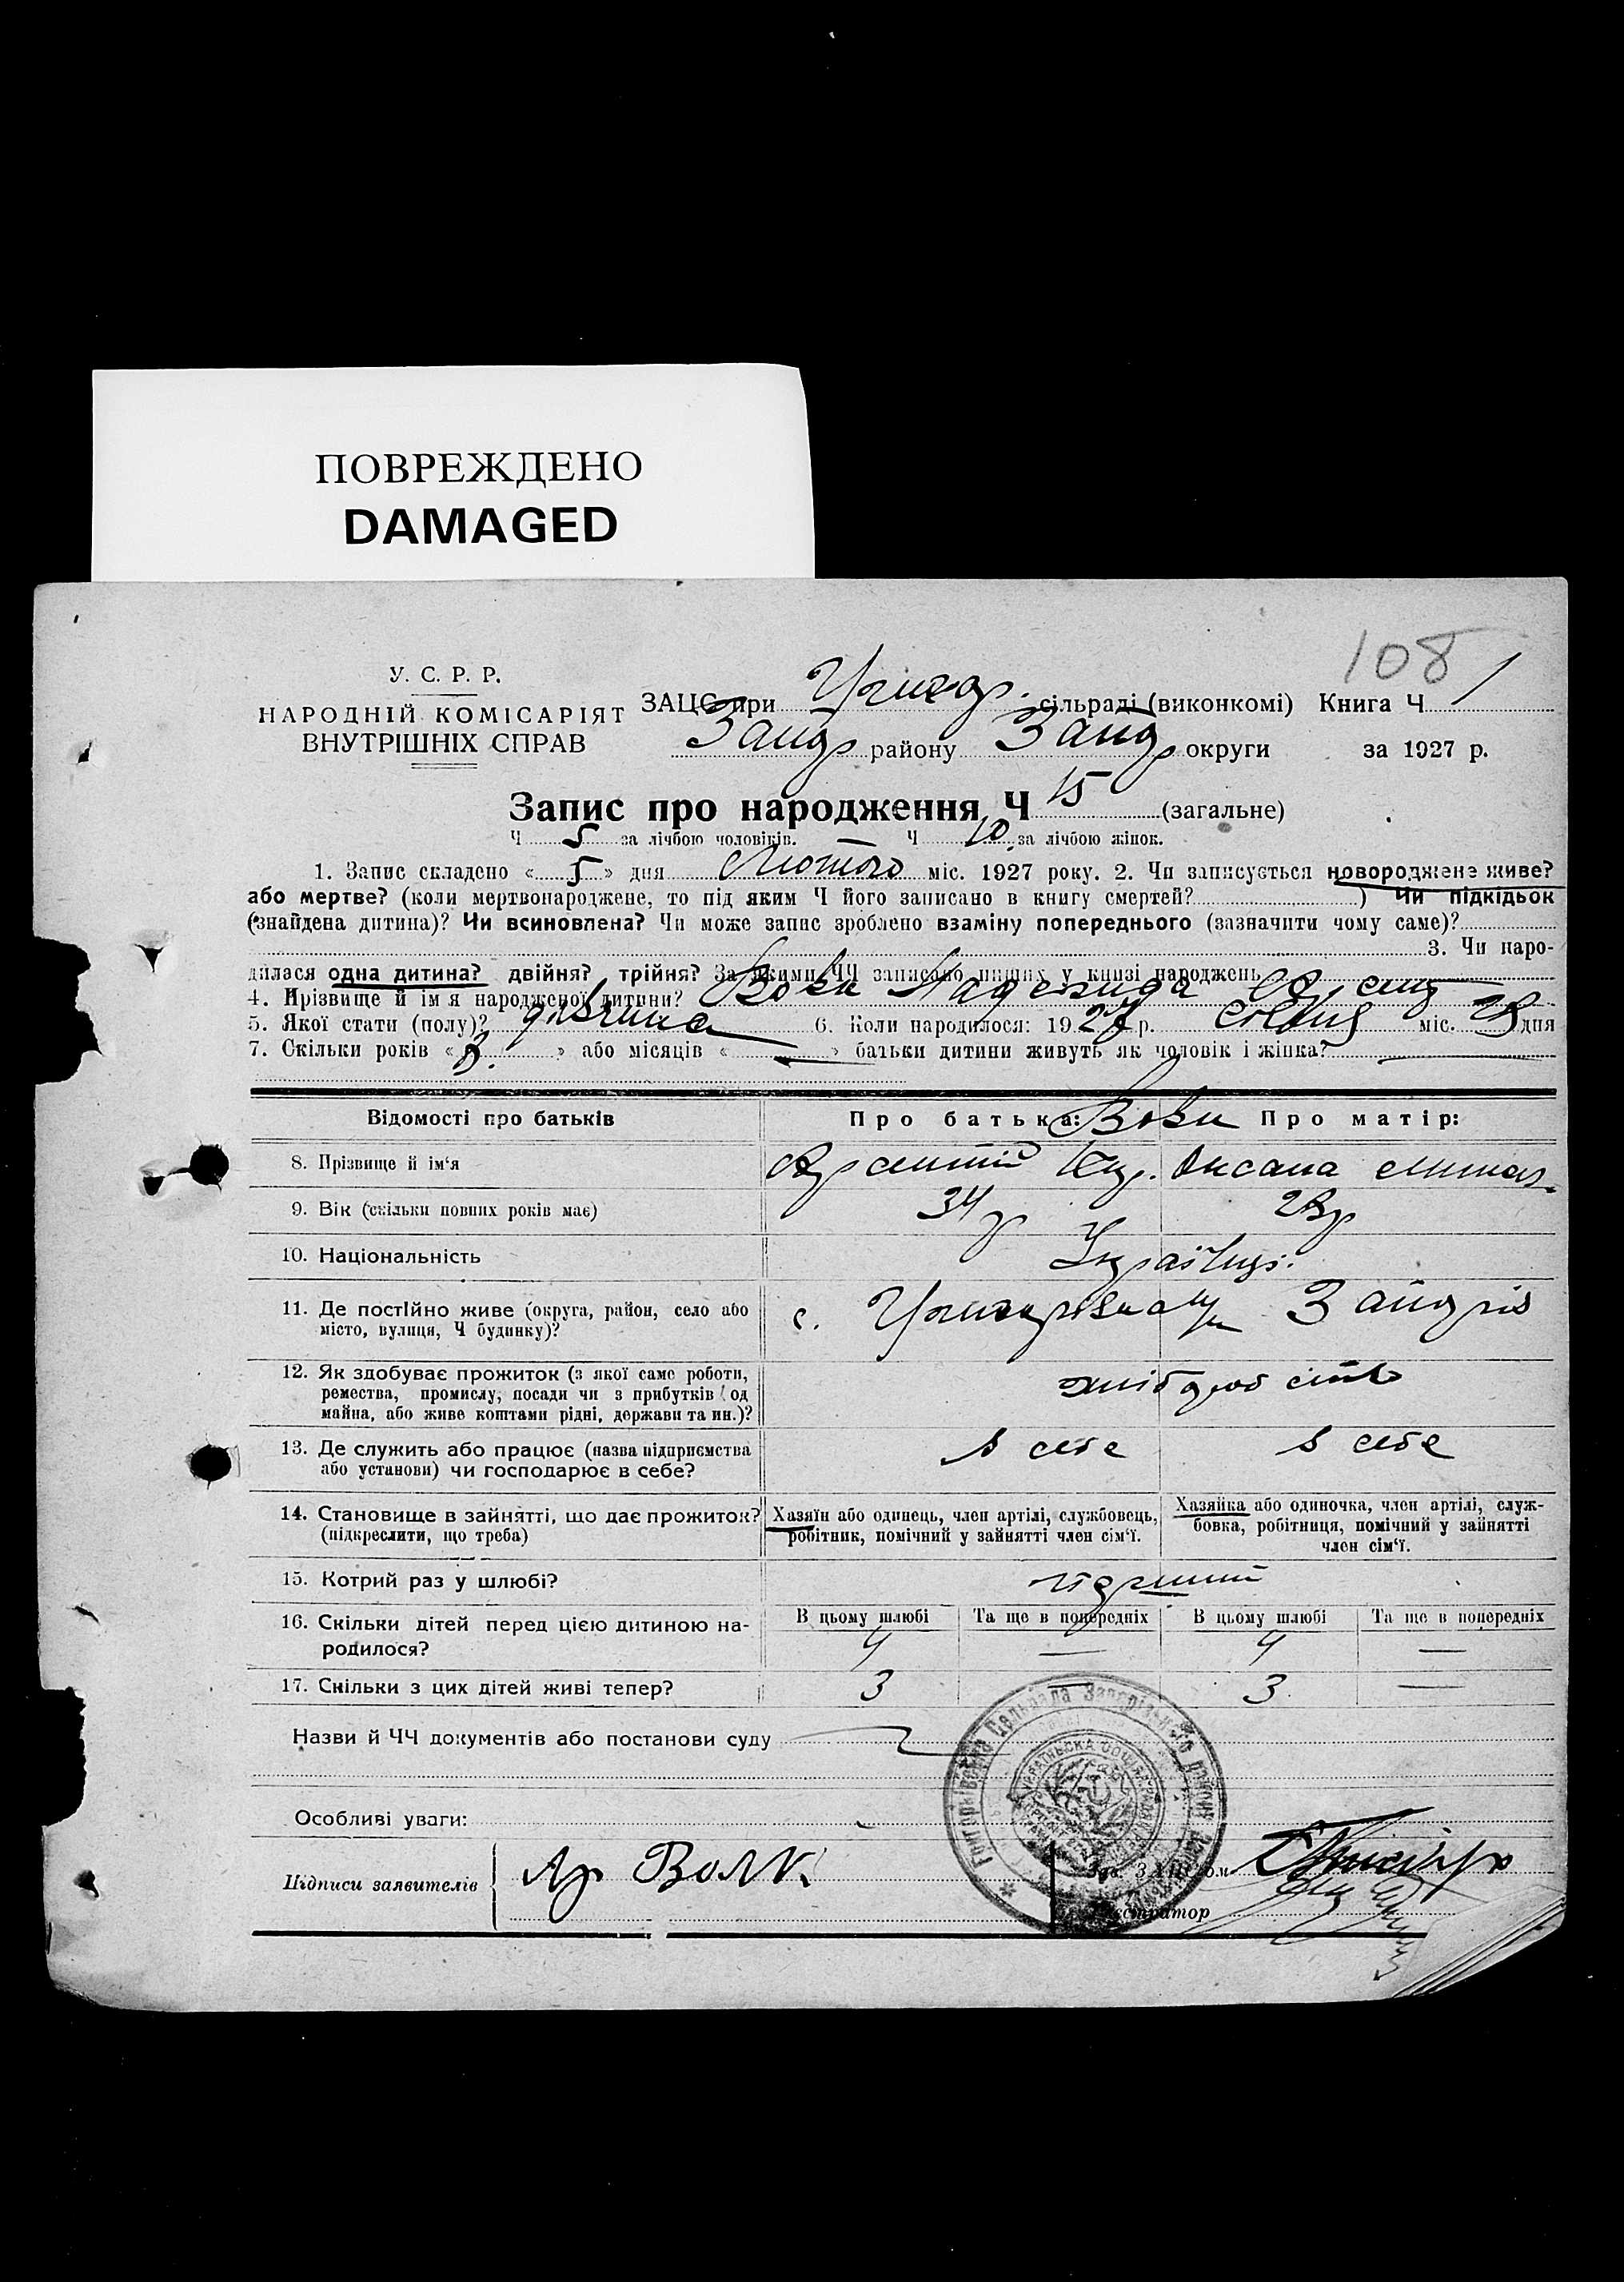 ПОВРЕЖДЕНО
DAMAGED
108
У. С. Р. Р.
НАРОДНІЙ КОМІСАРІЯТ
ВНУТРІШНІХ СПРАВ
ЗАЦС при сільраді (виконкомі) Книга Ч 1
району округи за 1927 р.
Запис про народження Ч 15 (загальне)
Ч 5 за лічбою чоловіків. Ч 10 за лічбою жінок.
1. Запис складено « 5 » дня Лютого міс. 1927 року. 2. Чи записується новороджене живе?
або мертве? (коли мертвонароджене, то під яким Ч його записано в книгу смертей? ) Чи підкідьок
(знайдена дитина)? Чи всиновлена? Чи може запис зроблено взаміну попереднього (зазначити чому саме)?
3. Чи наро-
дилася одна дитина? двійня? трійня? За якими ЧЧ записано инших у книзі народжень
4. Прізвище й ім'я народженої дитини? Вовк Надежида
5. Якої стати (полу)? дівчина 6. Коли народилося: 1927 р. Січня міс. дня
7. Скільки років « » або місяців « » батьки дитини живуть як чоловік і жінка?
Відомості про батьків Про батька: Вовк Про матір:
8. Прізвище й ім'я Арсентій Оксана
9. Вік (скільки повних років має) 34 р 28 р
10. Національність Українці
11. Де постійно живе (округа, район, село або
місто, вулиця, Ч будинку)? с.
12. Як здобуває прожиток (з якої саме роботи,
ремества, промислу, посади чи з прибутків од
майна, або живе коштами рідні, держави та ин.)? хліборобство
13. Де служить або працює (назва підприємства
або установи) чи господарює в себе? в себе в себе
14. Становище в зайнятті, що дає прожиток?
(підкреслити, що треба)
Хазяїн або одинець, член артілі, службовець,
робітник, помічний у зайнятті член сім'ї.
Хазяйка або одиночка, член артілі, служ-
бовка, робітниця, помічний у зайнятті
член сім'ї.
15. Котрий раз у шлюбі? перший
16. Скільки дітей перед цією дитиною на-
родилося?
В цьому шлюбі Та ще в попередніх В цьому шлюбі Та ще в попередніх
4 — 4 —
17. Скільки з цих дітей живі тепер? 3 — 3 —
Назви й ЧЧ документів або постанови суду
Особливі уваги:
Підписи заявителів Ар Волк
Зав. ЗАЦС'ом
Реєстратор